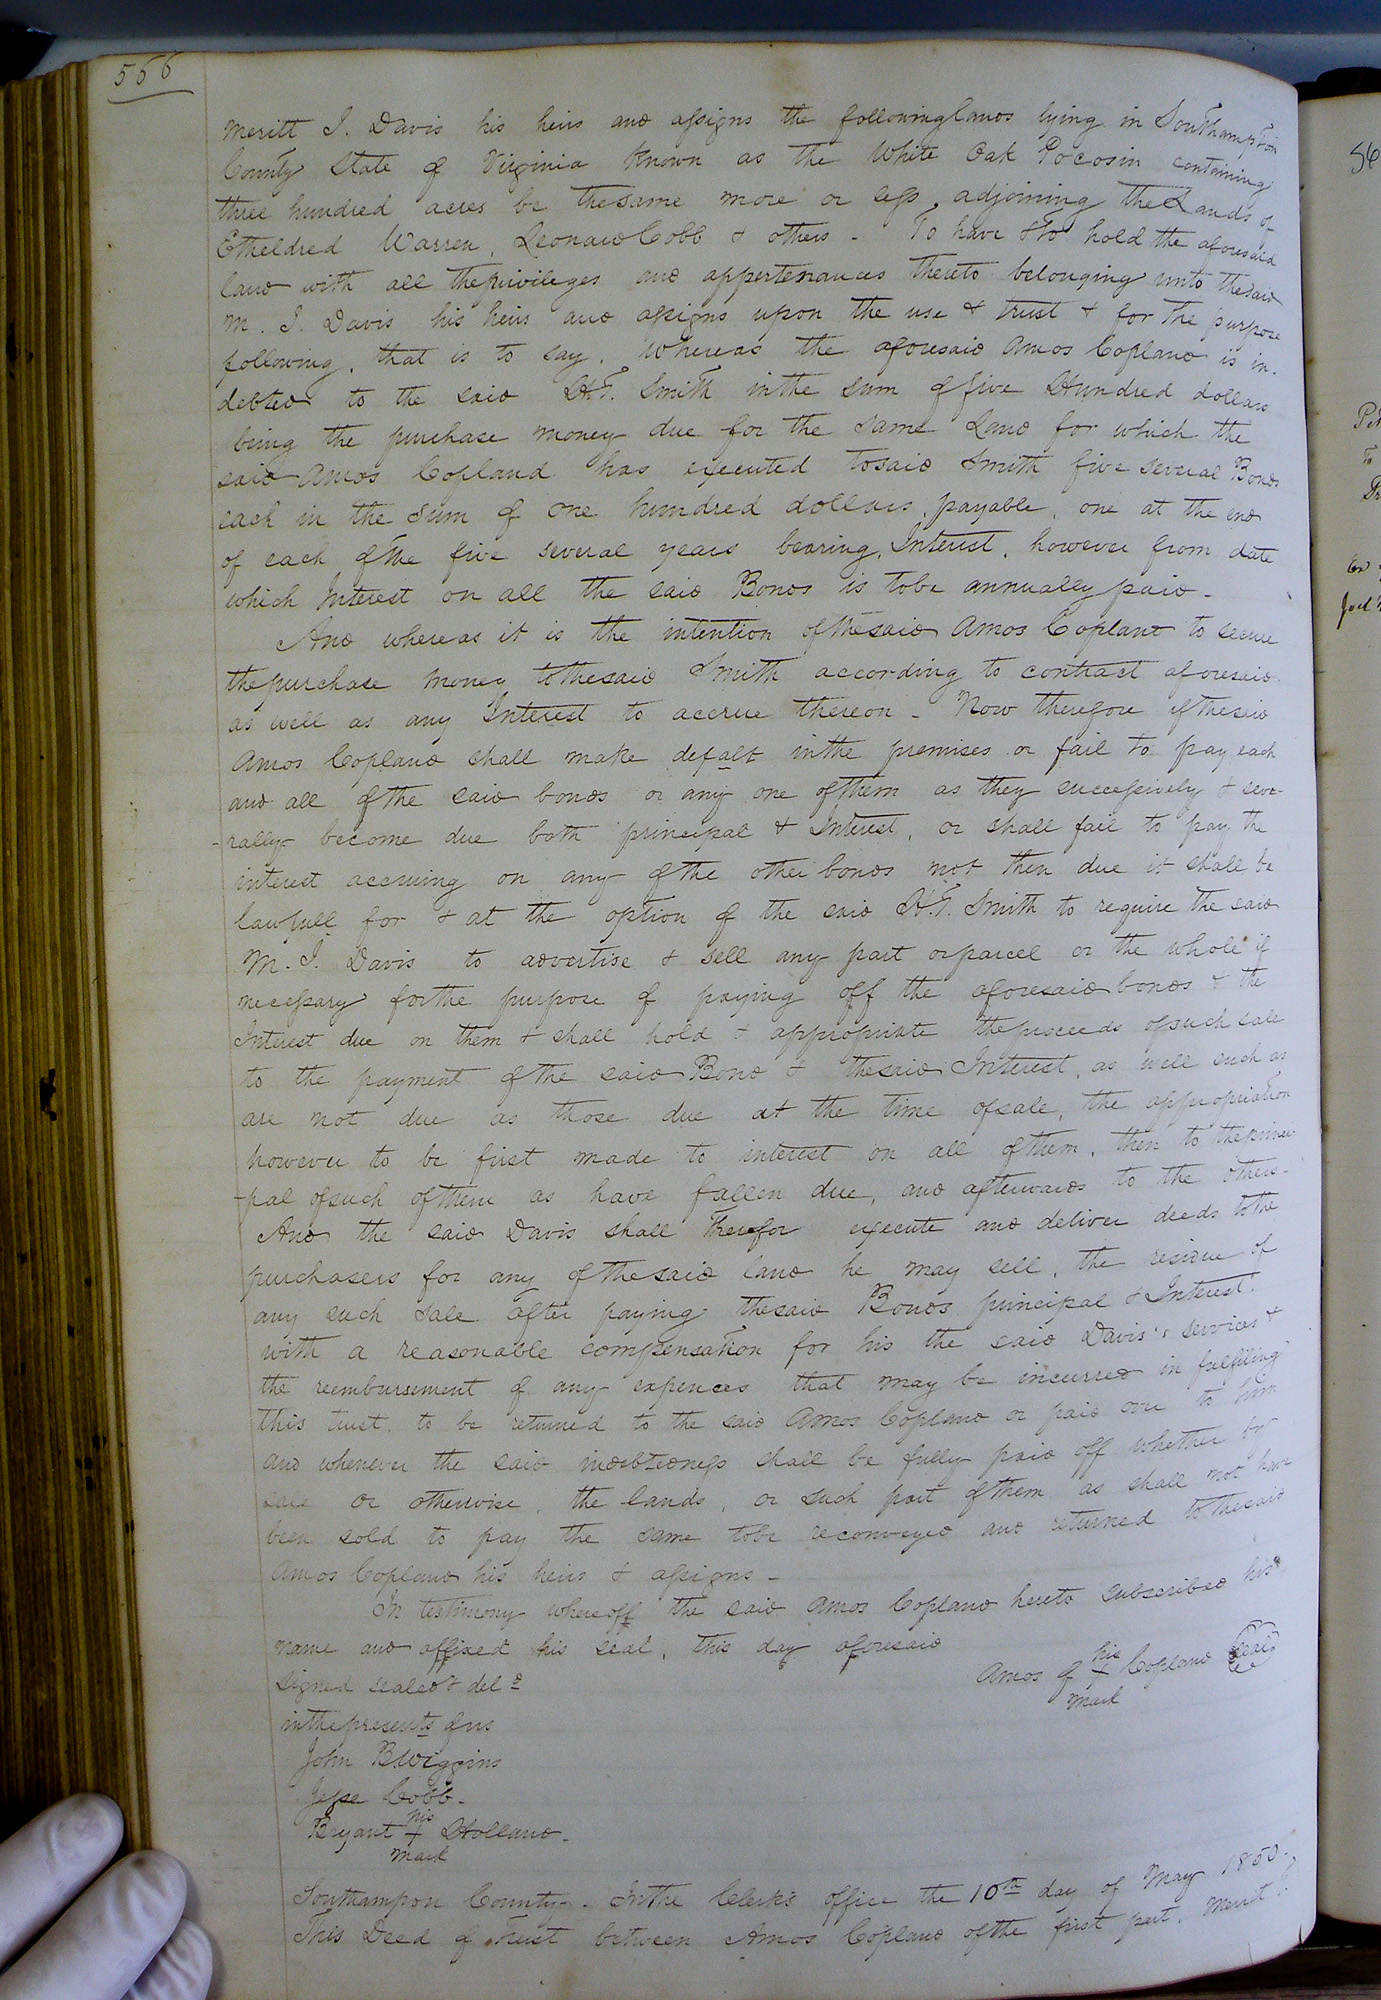 566
Meritt J. Davis his heirs and assigns the following lands lying in Southampton
County State of Virginia known as the White Oak Pocosin containing
three hundred acres be the same more or less, adjoining the Lands of
Etheldred Warren, Leonard Cobb & others - To have & to hold the aforesaid
land with all the privileges and appertenances thereto belonging unto the said
M. J. Davis his heirs and assigns upon the use & trust & for the purpose
following, that is to say. Whereas the aforesaid Amos Copland is in-
debted to the said H.T. Smith in the sum of five Hundred dollars
being the purchase money due for the same Land for which the
said Amos Copland has executed to said Smith five several Bonds
each in the sum of one hundred dollars, payable, one at the end
of each of the five several years bearing, Interest, however from date
which Interest on all the said Bonds is to be annually paid -
And whereas it is the intention of the said Amos Copland to secure
the purchase money to the said Smith according to contract aforesaid
as well as any Interest to accrue thereon - Now therefore if the said
Amos Copland shall make defalt in the premises or fail to pay each
and all of the said bonds or any one of them as they successively & seve-
-rally become due both principal & Interest, or shall fail to pay the
interest accruing on any of the other bonds not then due it shall be
lawfull for & at the option of the said H.T. Smith to require the said
M. J. Davis to advertise & sell any part or parcel or the whole if
necessary for the purpose of paying off the aforesaid bonds & the
Interest due on them & shall hold & appropriate the proceeds of such sale
to the payment of the said Bond & the said Interest, as well such as
are not due as those due at the time of sale, the appropriation
however to be first made to interest on all of them, then to the princi-
-pal of such of them as have fallen due, and afterwards to the others -
And the said Davis shall therefor execute and deliver deeds to the
purchasers for any of the said land he may sell, the residue of
any such sale after paying the said Bonds principal & Interest.
with a reasonable compensation for his the said Davis's services &
the reembursement of any expences that may be incurred in fulfiling
this trust, to be returned to the said Amos Copland or paid over to him
and whenever the said indebtedness shall be fully paid off whether by
sale or otherwise, the lands, or such part of them as shall not have
been sold to pay the same to be reconveyed and returned to the said
Amos Copland his heirs & assigns -
In testimony whereoff the said Amos Copland hereto subscribed his
name and affixed his seal, this day aforesaid
his
Amos + Copland (Seal)
mark
Signed sealed & deld
in the presents of us
John B Wiggins
Jesse Cobb -
his
Bryant + Holland -
mark
Southampon County - In the Clerk's office the 10th day of May 1850 -
This Deed of Trust between Amos Copland of the first part, Merit J.